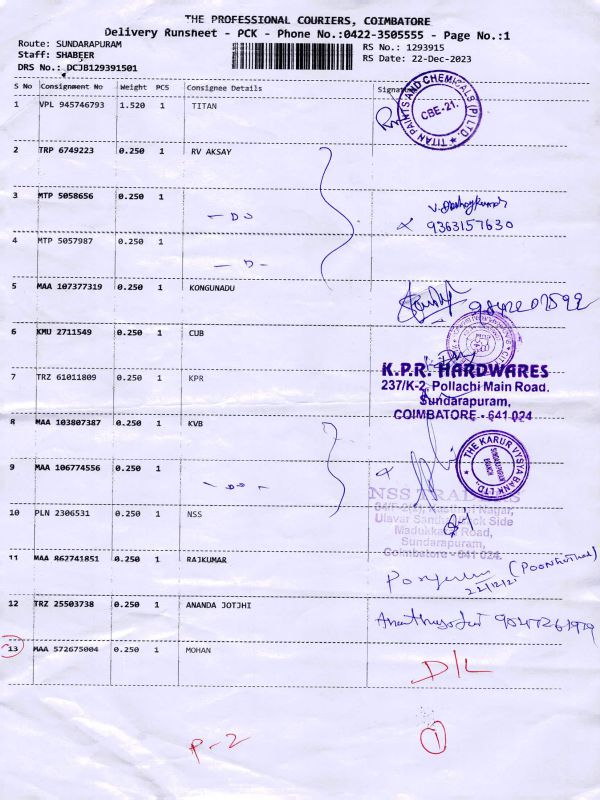 THE PROFESSIONAL COURIERS, COIMBATORE
Delivery Runsheet - PCK - Phone No.:0422-3505555 - Page No.:1
Route: SUNDARAPURAM
RS No.: 1293915
Staff: SHABEER
RS Date: 22-Dec-2023
DRS No.: DCJB129391501
S No Consignment No Weight PCS Consignee Details Signature
1 VPL 945746793 1.520 1 TITAN
TITAN PAINTS AND CHEMICALS (P) LTD. ★
CBE-21.
2 TRP 6749223 0.250 1 RV AKSAY
3 MTP 5058656 0.250 1
- DO
9363157630
4 MTP 5057987 0.250 1
- D -
5 MAA 107377319 0.250 1 KONGUNADU
9842207599
6 KMU 2711549 0.250 1 CUB
7 TRZ 61011809 0.250 1 KPR
K.P.R. HARDWARES
237/K-2, Pollachi Main Road.
Sundarapuram,
COIMBATORE - 641 024
8 MAA 103807387 0.250 1 KVB
THE KARUR VYSYA BANK LTD.,
SUNDARAPURAM
BRANCH
9 MAA 106774556 0.250 1
- DO -
10 PLN 2306531 0.250 1 NSS
NSS TRADERS
Nagar,
Ulavar Side
Madukkarai Road,
Sundarapuram,
Coimbatore - 641 024.
11 MAA 862741851 0.250 1 RAJKUMAR
12 TRZ 25503738 0.250 1 ANANDA JOTJHI
13 MAA 572675004 0.250 1 MOHAN
D/L
P-2
1